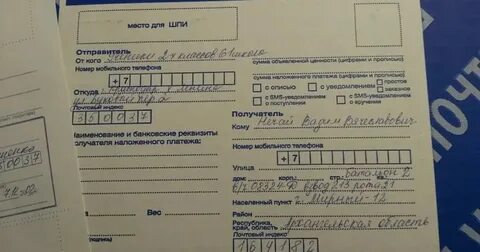 место для ШПИ
Отправитель
От кого 2х классов 61 школа
Номер мобильного телефона
+ 7
Откуда г. Краснодар х. Ленина
Почтовый индекс
350037
Наименование и банковские реквизиты
получателя наложенного платежа:
сумма объявленной ценности (цифрами и прописью)
сумма наложенного платежа (цифрами и прописью)
с описью
с уведомлением
простое
заказное
с SMS-уведомлением
о поступлении
с SMS-уведомлением
о вручении
Получатель
Кому Нечай Вадим Вячеславович
+ 7
Улица батальон 2
дом корп.
в/ч 08324-Д взвод 213 рота 21
Населенный пункт г. Мирный-12
Район
Республика,
край, область Архангельская область
Почтовый индекс
164182
ПОЧТ